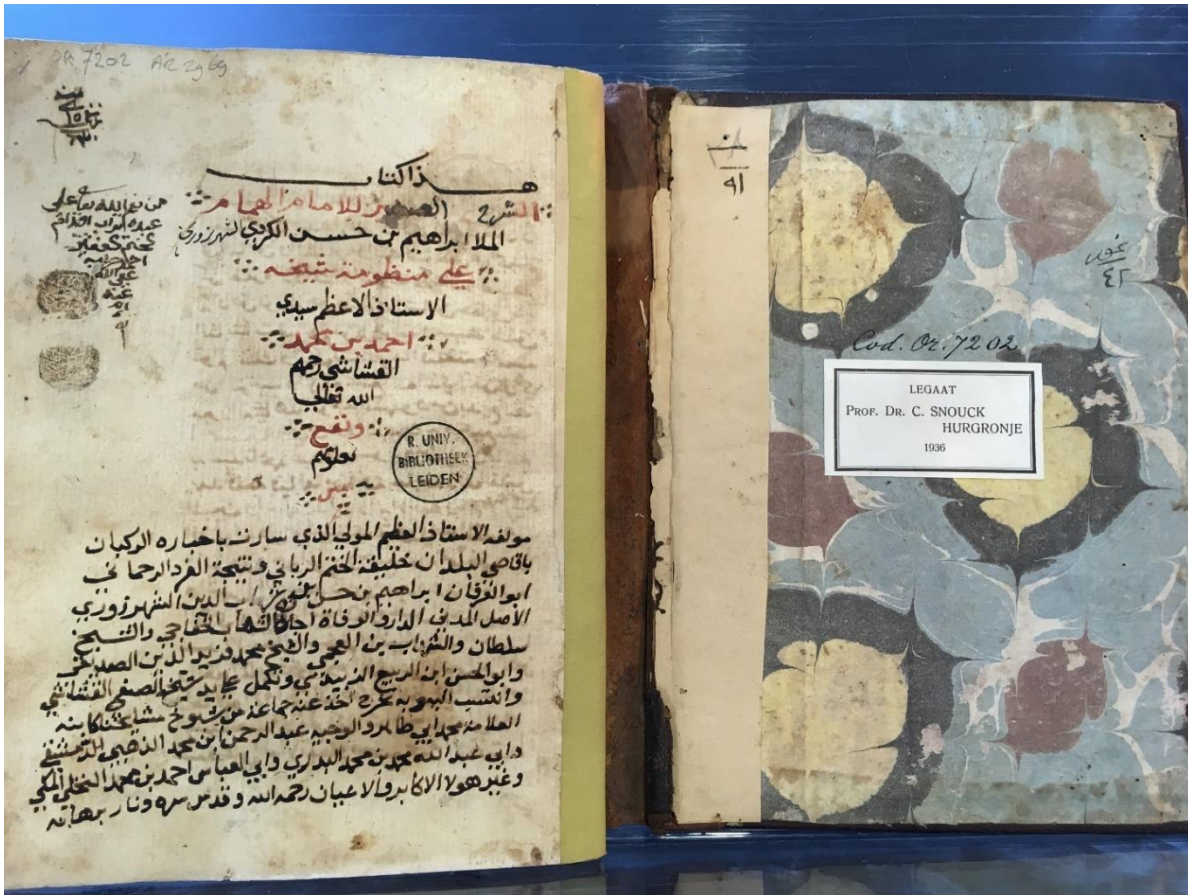 OR 7202 AR 2969
هذا كتاب
الشرح الصغير للامام الهمام
الملا ابراهيم بن حسن الكردي الشهرزوري
علي منظومة شيخه
الاستاذ الاعظم سيدي
احمد بن محمد
القشاشي رحمهم
الله تعالي
ونفع
بعلومهم
R. UNIV.
BIBLIOTHEEK
LEIDEN
مولفه الاستاذ العظيم المولي الذي سارت باخباره الركبان
باقاصي البلدان خليفة الختم الرباني ونتيجة الفرد الرحماني
ابو العرفان ابراهيم بن حسن بن شهاب الدين الشهرزوري
الاصل المدني الدار والوفاة اجازه الشهاب الخفاجي والشيخ
سلطان والشهاب بن العجمي والشيخ محمد
وابو الحسن ابن الربيع وتكمل علي يد شيخه الصفي القشاشي
وانتسب اليه وبه تخرج اخذ عنه جماعة من شيوخ مشايخنا كابنه
العلامة محمد ابي طاهر والوجيه عبد الرحمن ابن محمد الذهبي الدمشقي
وابي عبد الله محمد بن محمد البديري وابي العباس احمد بن محمد النخلي المكي
وغير هولا الاكابر والاعيان رحمه الله وقدس سره ونار برهانه
من نعم الله تعالى علي
عبده
٩١
٤٢
Cod. Or. 7202
LEGAAT
PROF. DR. C. SNOUCK
HURGRONJE
1936